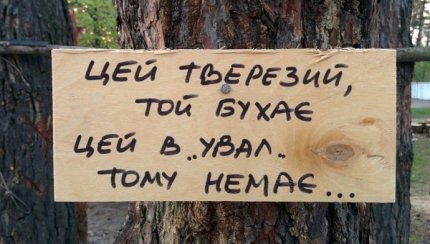 ЦЕЙ ТВЕРЕЗИЙ,
ТОЙ БУХАЄ
ЦЕЙ В „УВАЛ„
ТОМУ НЕМАЄ...